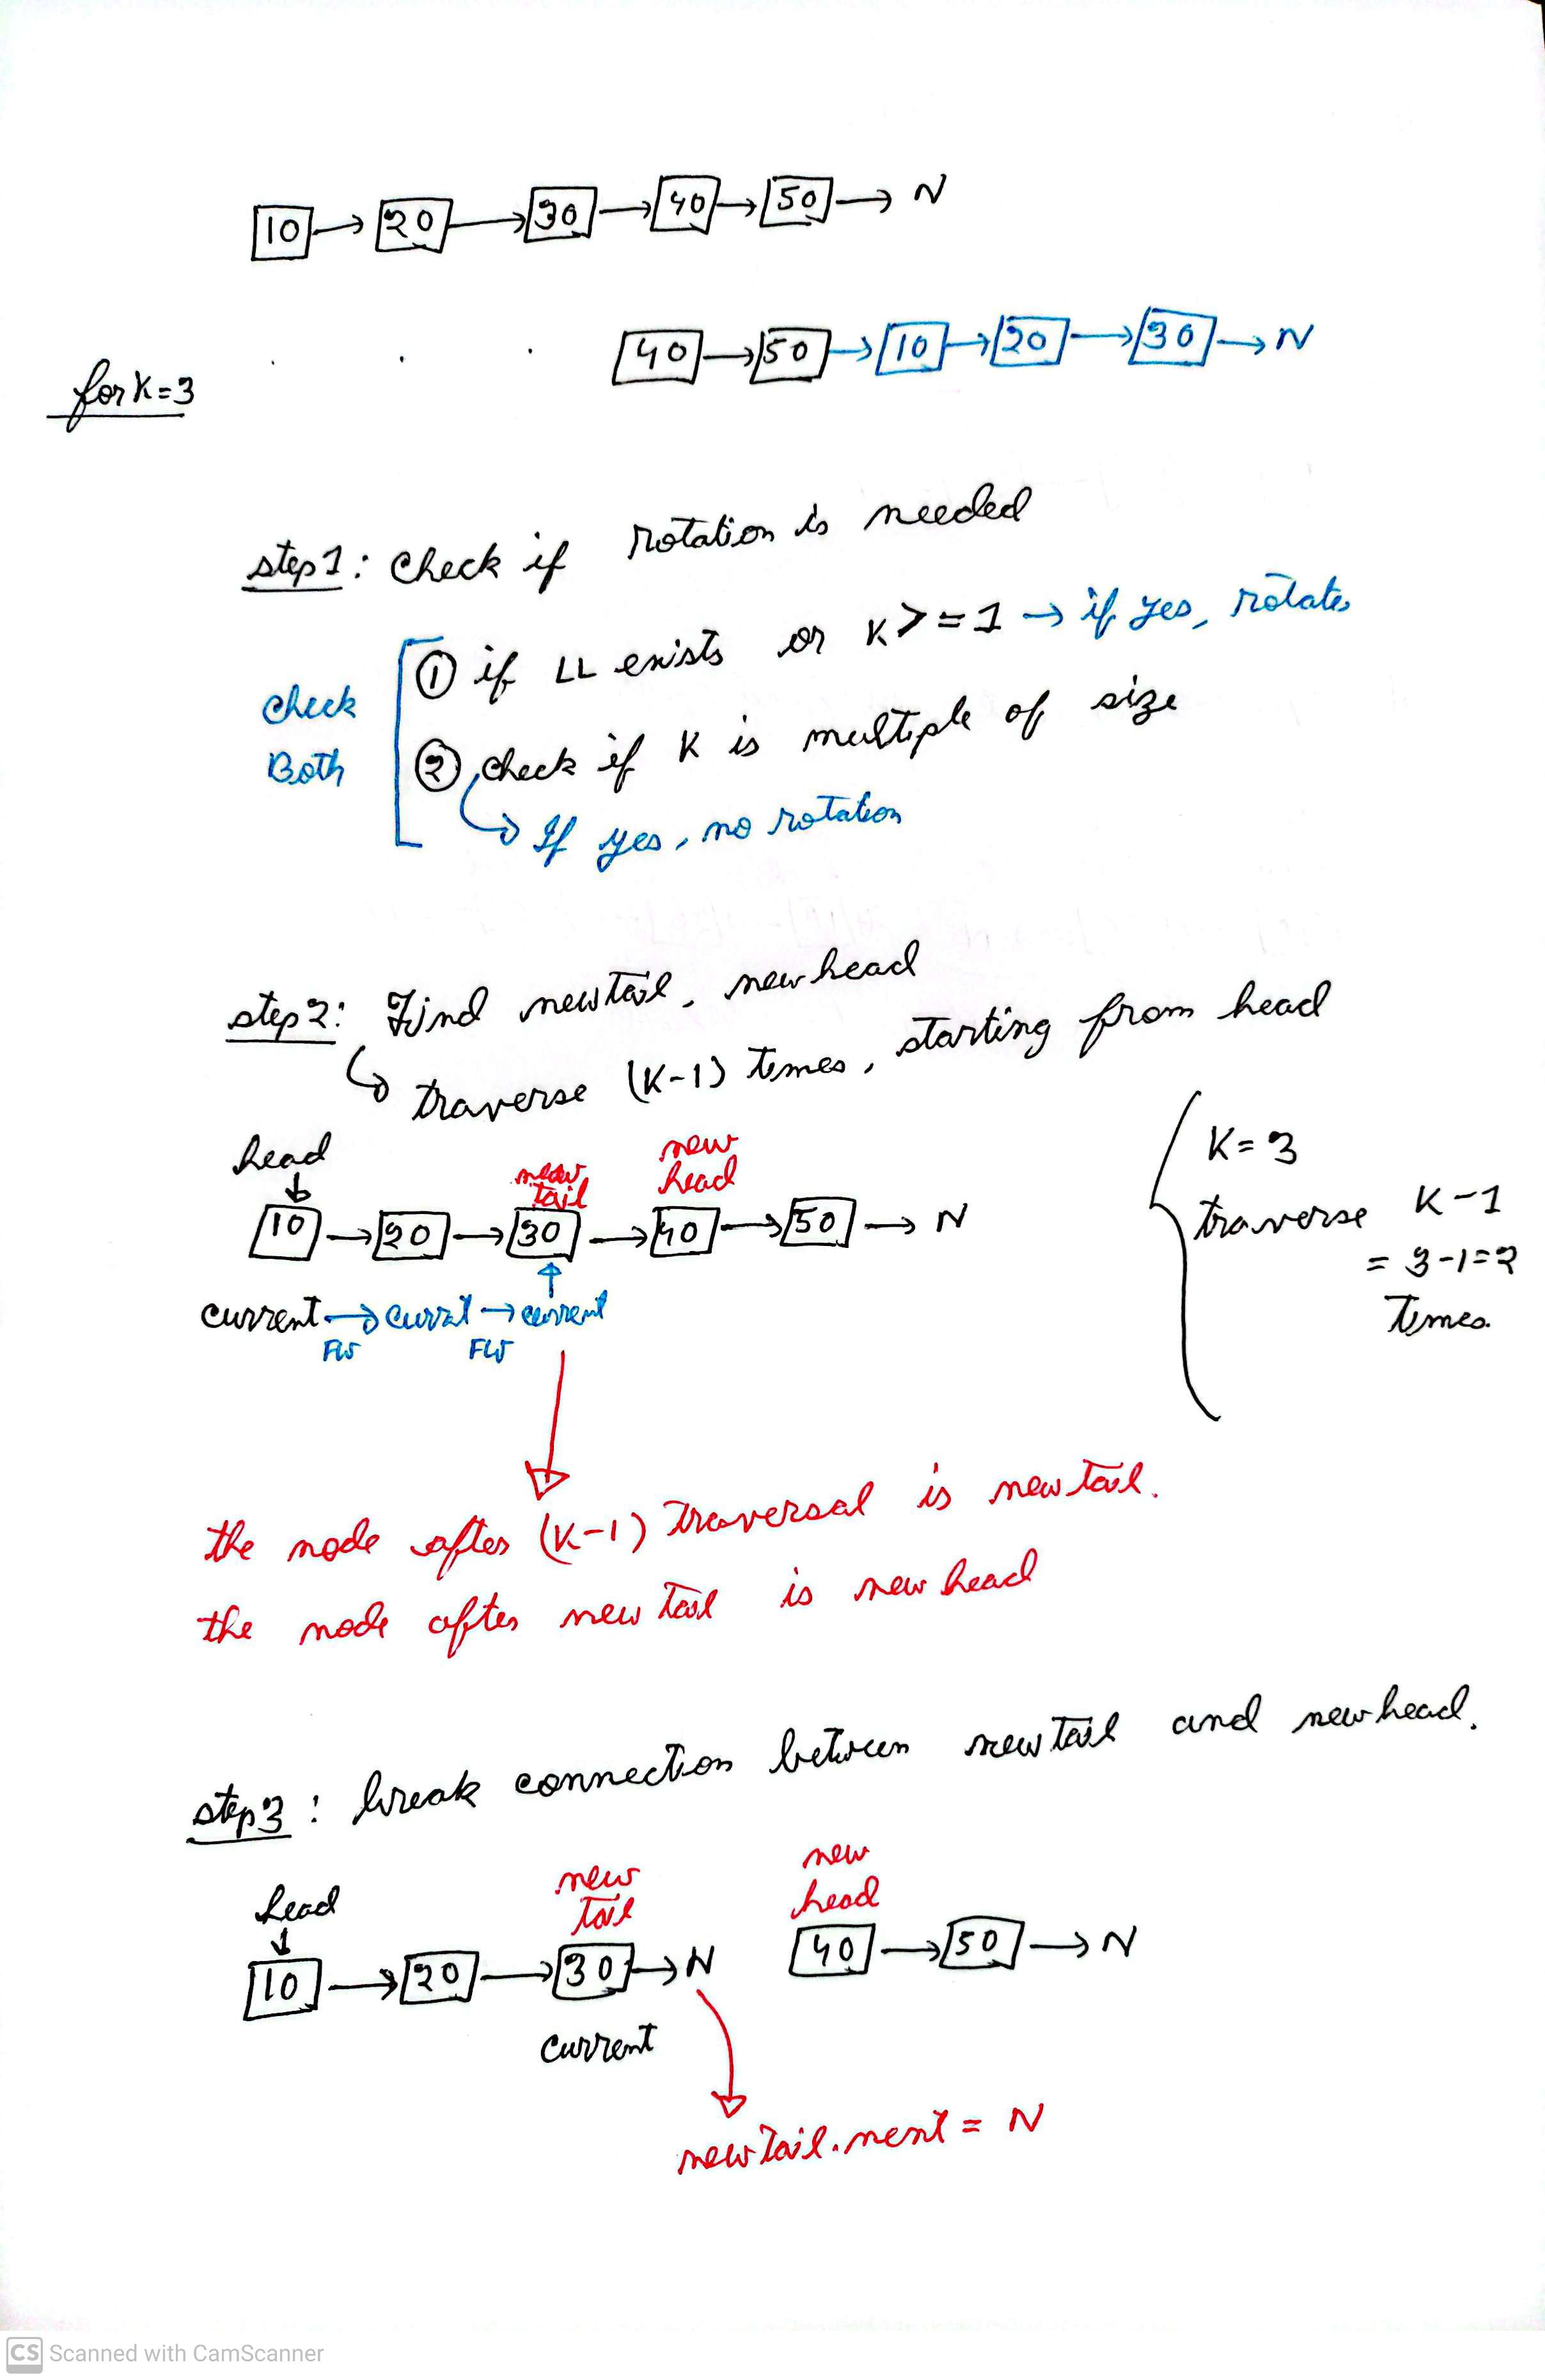 10 → 20 → 30 → 40 → 50 → N
40 → 50 → 10 → 20 → 30 → N
for K=3
step1: Check if rotation is needed
Check Both
① if LL exists or K>=1 → if yes, rotate
② check if K is multiple of size
↳ If yes, no rotation
step2: Find new tail, new head
↳ traverse (K-1) times, starting from head
head
new tail
new head
10 → 20 → 30 → 40 → 50 → N
current → current → current
FW FW
K=3
traverse K-1
= 3-1=2
Times.
the node after (K-1) Traversal is new tail.
the node after new tail is new head
step3: break connection between new tail and new head.
head
new tail
new head
10 → 20 → 30 → N 40 → 50 → N
current
new Tail.next = N
CS Scanned with CamScanner